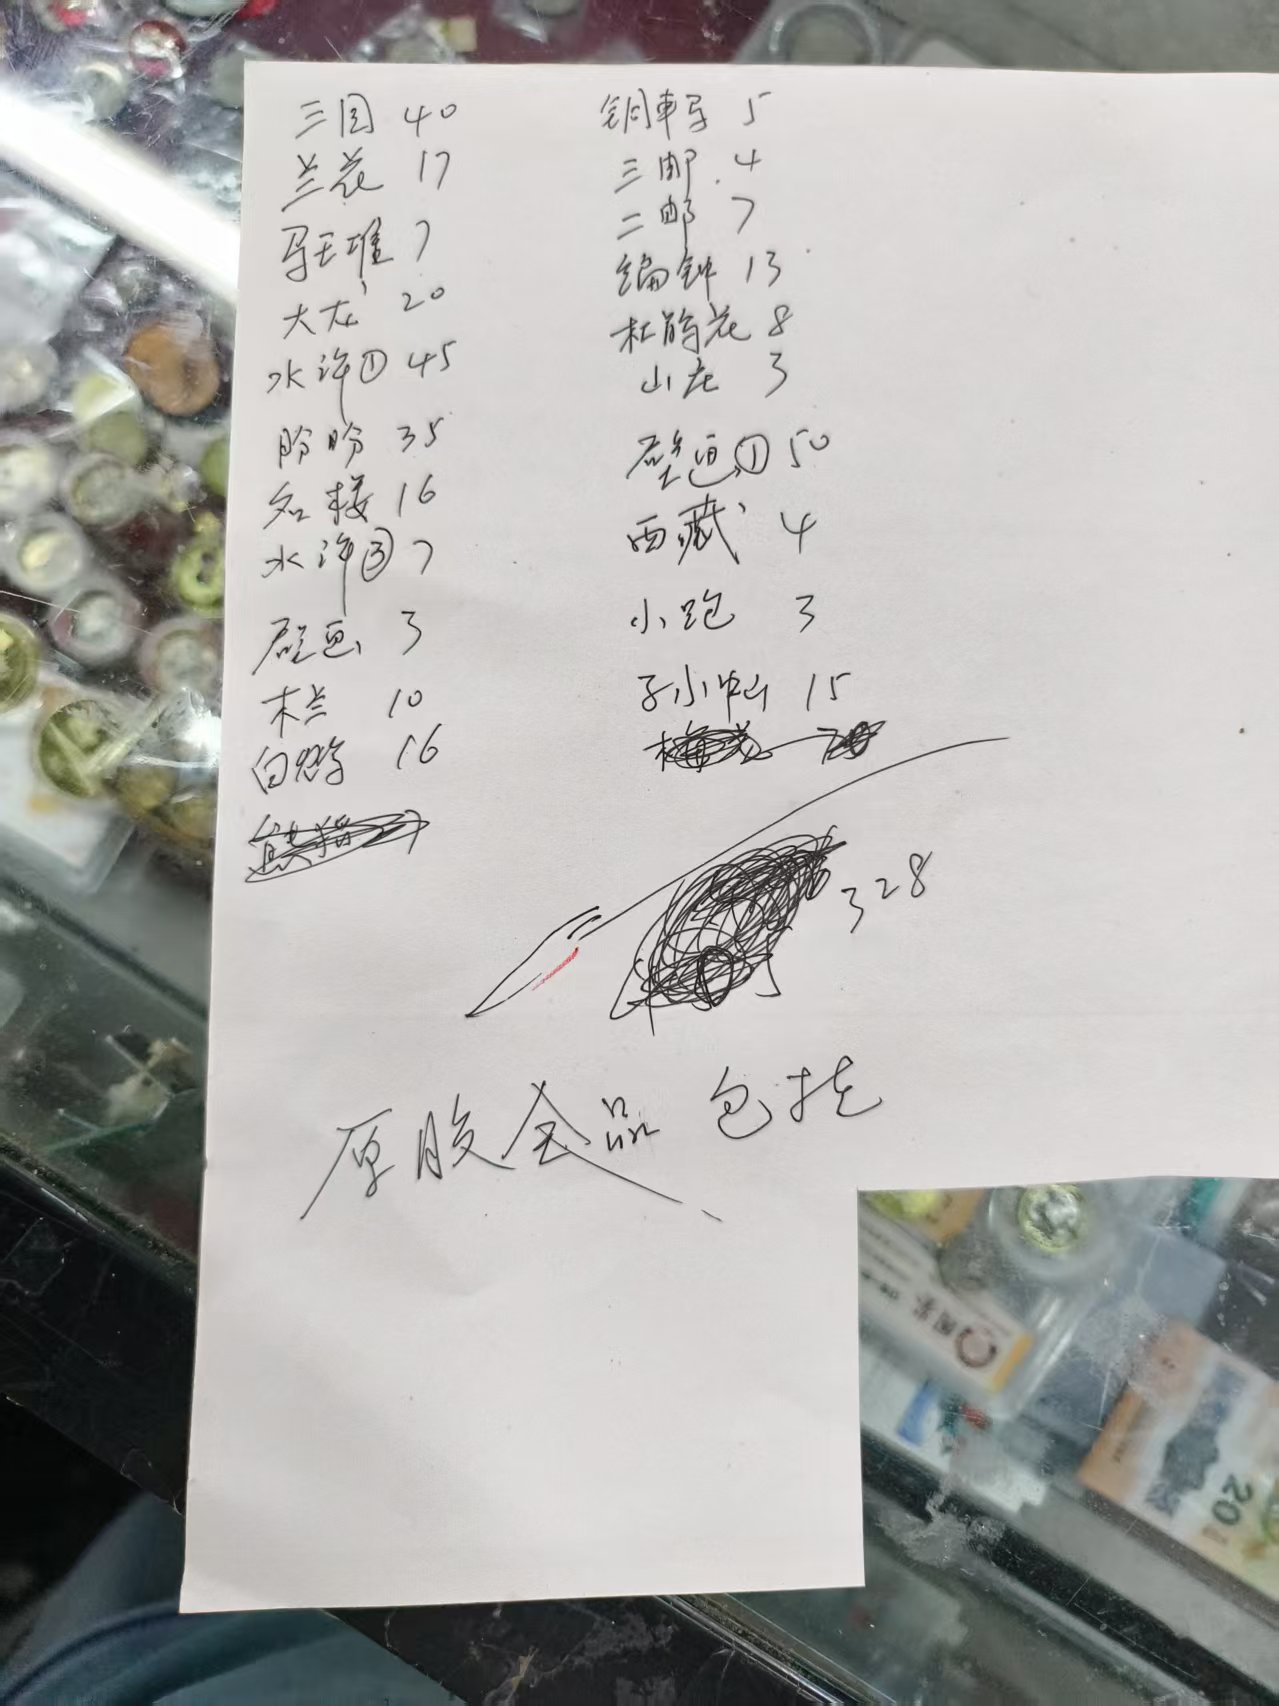 三国 40
兰花 17
马王堆 7
大龙 20
水浒① 45
盼盼 35
名楼 16
水浒③ 7
壁画 3
木兰 10
白鹭 16
熊猫
铜车马 5
三邮 4
二邮 7
编钟 13
杜鹃花 8
山庄 3
壁画① 50
西藏 4
小跑 3
孙小中山 15
梅花
328
原胶全品 包挂
20